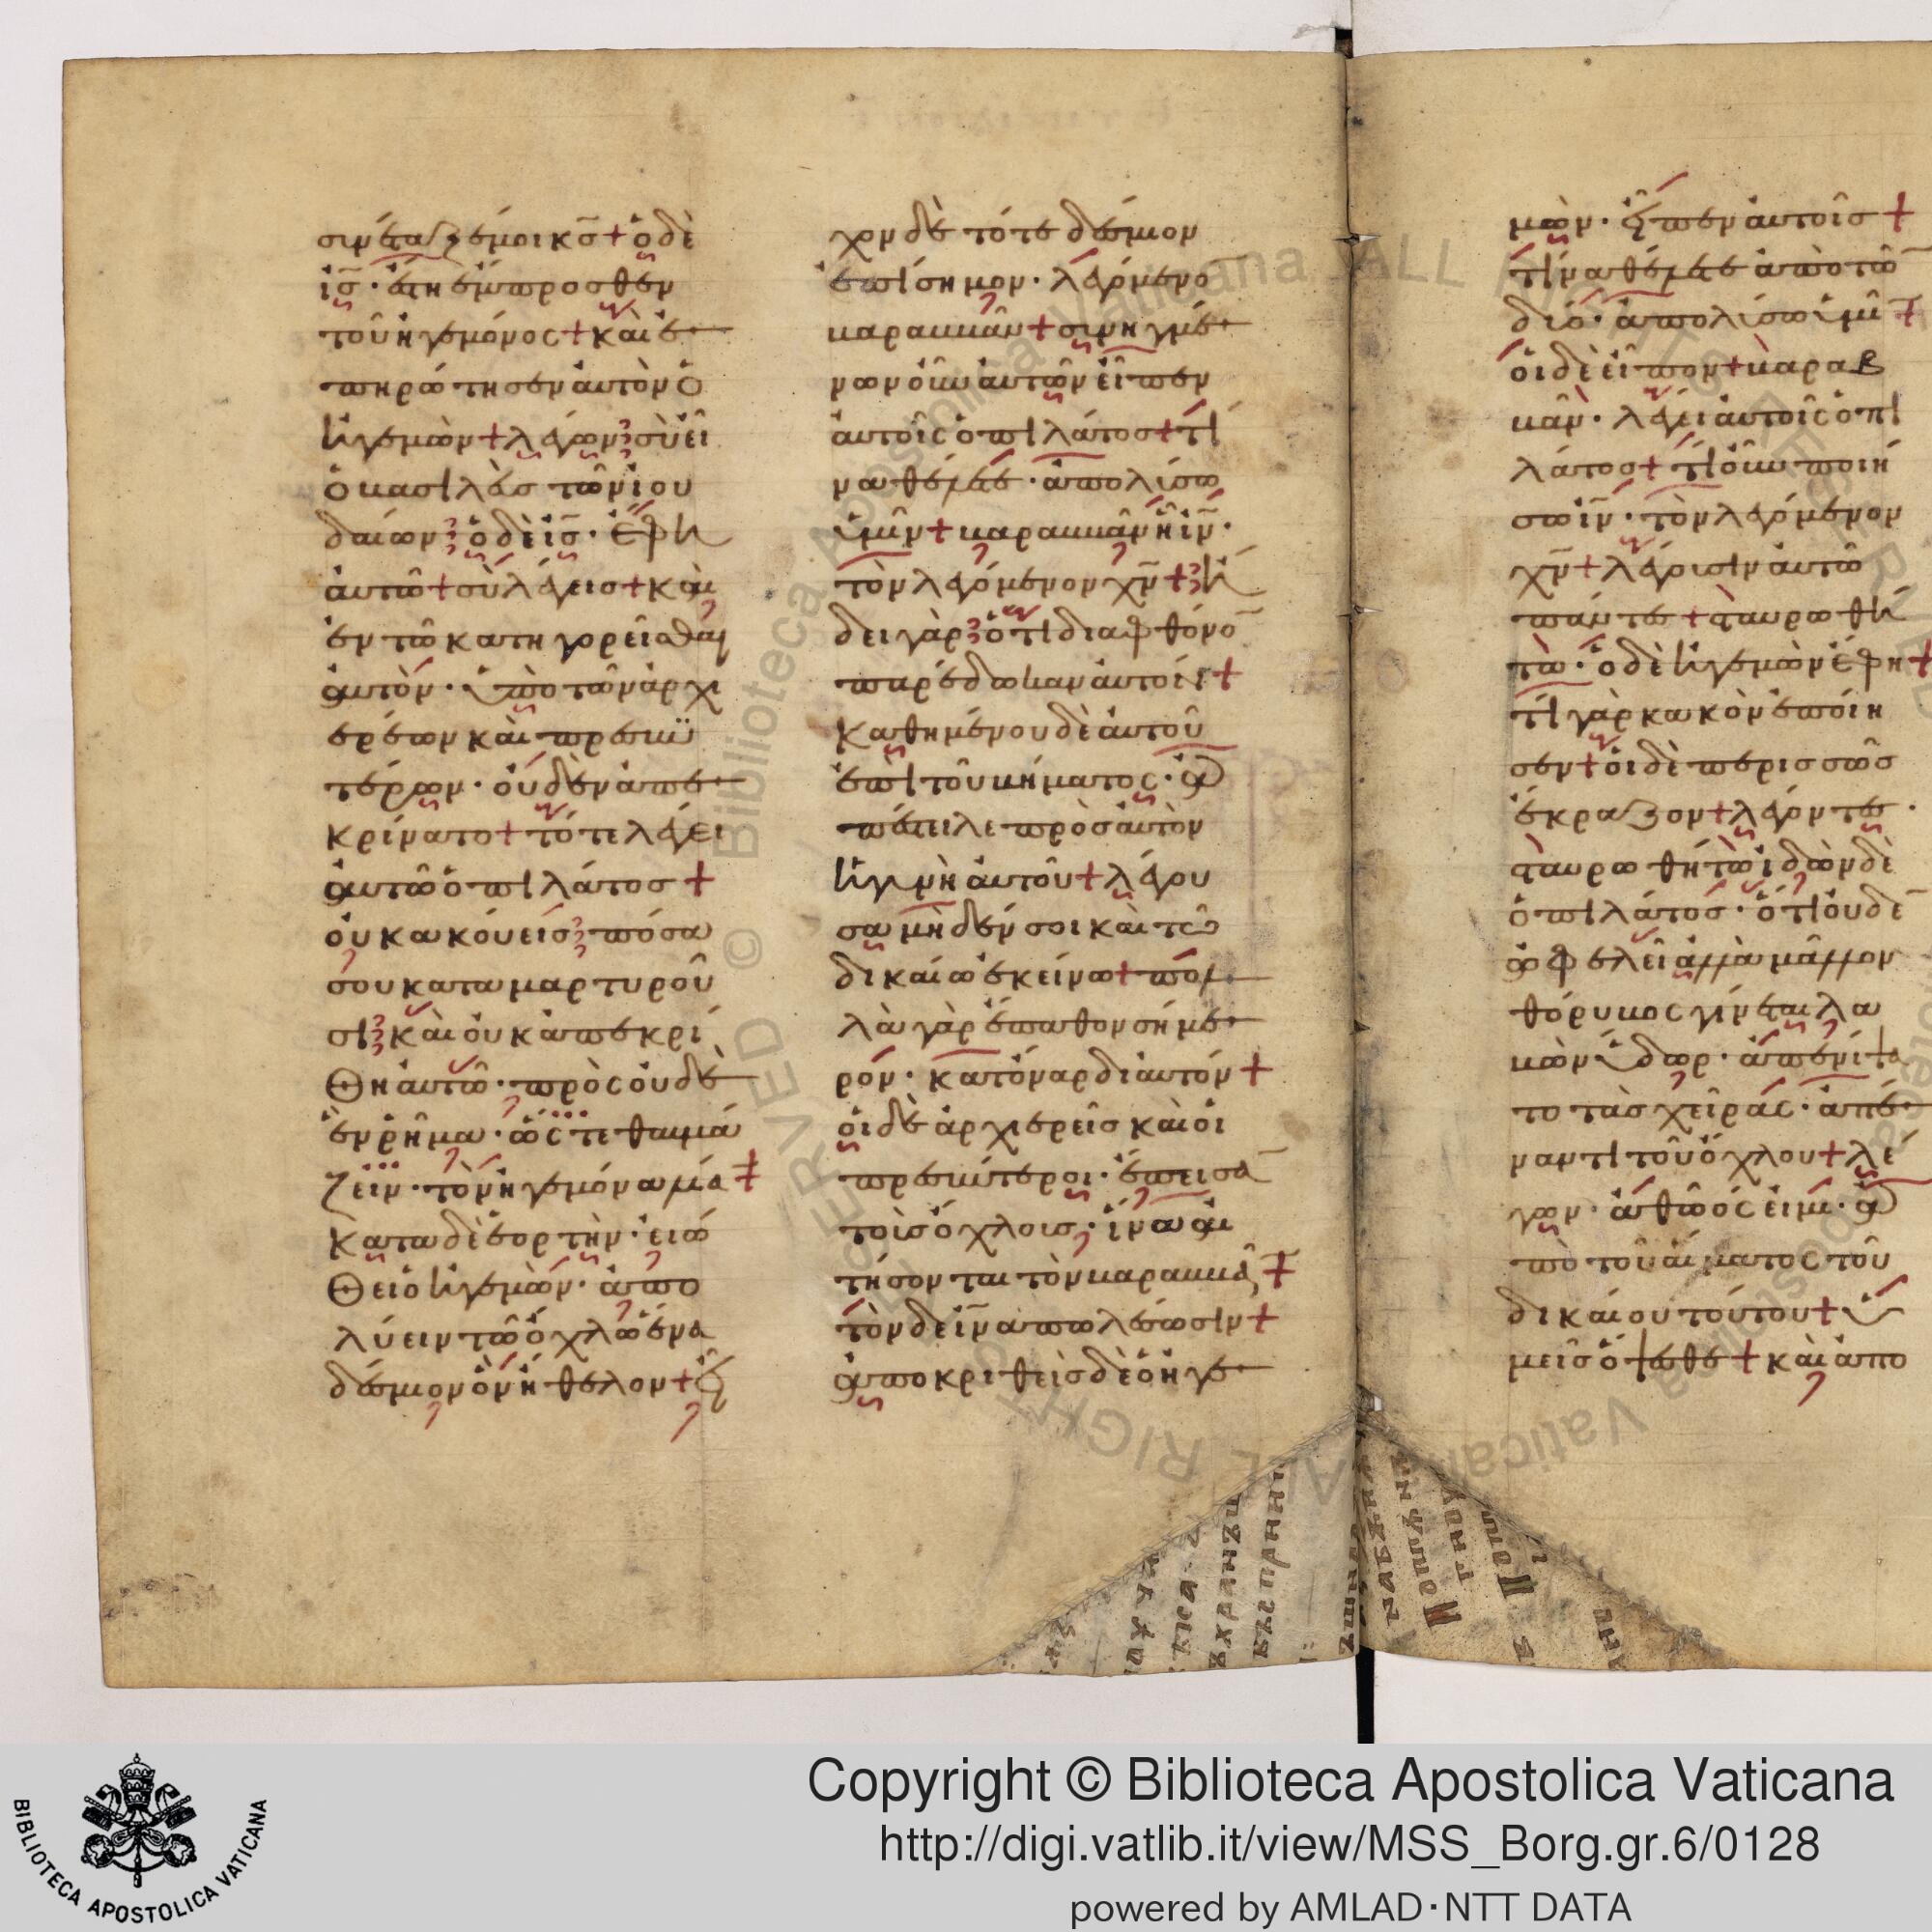 σινέταξέμοι κ̅σ̅ + ὁ δὲ
ἰ̅σ̅ · ἔστη ἔμπροσθεν
τοῦ ἡγεμόνος + καὶ ἐ
πηρώτησεν ἀυτὸν ὁ
ἡγεμὼν + λέγων σὺ εἶ
ὁ βασιλὲυσ τῶν ἰου
δαίων ὁ δὲ ἰ̅σ̅ · ἔφη
ἀυτῶ + σὺ λέγεισ + καὶ
ἐν τῶ κατηγορεῖσθαι
ἀυτόν · ὑπὸ τῶν ἀρχι
ερέων καὶ πρεσβυ
τέρων · οὐδὲν ἀπε
κρίνατο + τότε λέγει
ἀυτῶ ὁ πιλάτοσ +
οὐκ ακόυεισ πόσα
σου καταμαρτυροῦ
σι καὶ οὐκ ἀπεκρί
θη ἀυτῶ · πρὸς οὐδὲ
ἐν ῥῆμα · ὥς τε θαυμά
ζειν · τὸν ἡγεμόνα λία̅ +
Κατα δὲ ἑορτὴν · ειώ
θει ὁ ἡγεμὼν · ἀπο
λύειν τῶ ὄχλω ἕνα
δέσμιον ὃν ἤθελον + εἶ
χον δὲ τότε δέσμιον
ἐπίσημον · λεγόμενο̅
βαραββᾶν + σινηγμέ
νων οὖν ἀυτῶν εἶπεν
ἀυτοῖς ὁ πιλάτοσ + τί
να θέλετε · ἀπολίσω
ὑμῖν + βαραββᾶν ἢ ἰ̅ν̅ ·
τὸν λεγόμενον χ̅ν̅ + ἤ
δει γὰρ ὅτι δια φθόνο̅
παρέδωκαν ἀυτόν +
Καθημένου δὲ ἀυτοῦ
ἐπὶ τοῦ βήματος · ἀ
πέστειλε πρὸσ ἀυτὸν
ἡ γυνὴ ἀυτοῦ + λέγου
σα μὴδέν σοι καὶ τῶ
δικαίω ἐκείνω + πολ
λὰ γὰρ ἔπαθον σήμε
ρον · κατ όναρ δι ἀυτόν +
οἱ δὲ ἀρχιερεῖσ καὶ οἱ
πρεσβύτεροι · ἔπεισα̅
τοὶσ ὄχλοισ · ἵνα αι
τήσονται τὸν βαραββᾶ̅ +
τὸν δε ἰ̅ν̅ απωλέσωσιν +
ἀποκριθεὶσ δὲ ὁ ἡγε
μὼν · εἶπεν ἀυτοῖσ +
τίνα θέλετε ἀπὸ τῶ̅
δύο · ἀπολίσω ὑμῖ̅ +
οἱ δὲ εἶπον + βαραβ
βᾶν · λέγει ἀυτοῖς ὁ πι
λάτοσ + τί οὖν ποιή
σω ἰ̅ν̅ · τὸν λεγόμενον
χ̅ν̅ + λέγοισιν ἀυτῶ
πάντεσ + σταυρωθή
τω · ὁ δὲ ἡγεμὼν ἔφη +
τί γὰρ κακὸν ἐποίη
σεν + οἱ δὲ περισσῶσ
ἔκραζον + λέγοντεσ ·
σταυρωθήτω ἰδὼν δὲ
ὁ πιλάτοσ · ὅτι οὐδὲ̅
ὀφελεῖ ἀλλὰ μᾶλλον
θόρυβος γίνεται λα
βὼν ὕδωρ · ἀπενίψα
το τὰσ χεῖρας · ἀπέ
ναντι τοῦ όχλου + λέ
γων · ἀθῶός εἰμι · ἀ
πὸ τοῦ αἵματος τοῦ
δικαίου τούτου + ὑ
μεῖσ ὄψεσθε + καὶ απο
Copyright © Biblioteca Apostolica Vaticana
http://digi.vatlib.it/view/MSS_Borg.gr.6/0128
powered by AMLAD·NTT DATA
BIBLIOTECA APOSTOLICA VATICANA